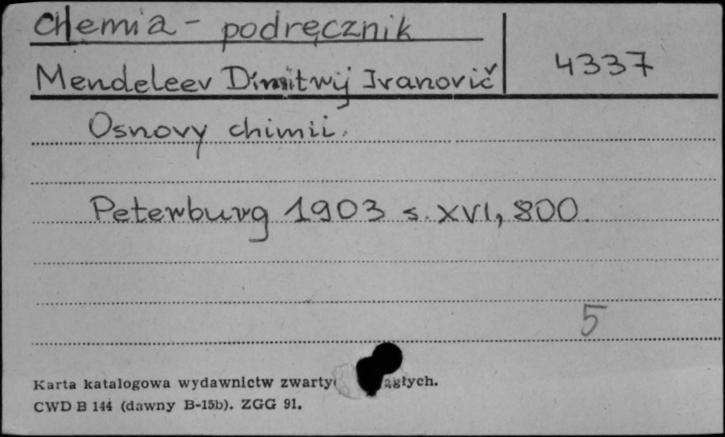 Chemia - podręcznik
Mendeleev Dimitrij Ivanovič 4337
Osnovy chimii.
Peterburg 1903 s. XVI, 800.
5
Karta katalogowa wydawnictw zwarty głych.
CWD B 144 (dawny B-15b). ZGG 91.